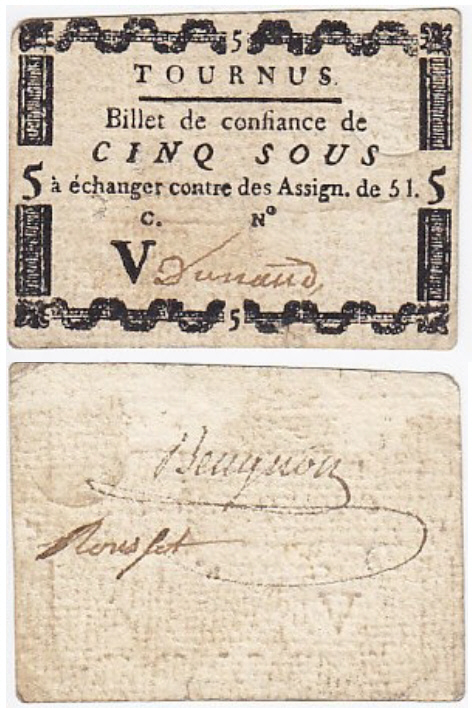 5
TOURNUS.
Billet de confiance de
CINQ SOUS
5 à échanger contre des Assign. de 5 l. 5
C. Nº
V Dunand
5
Beugnon
Rousset
V